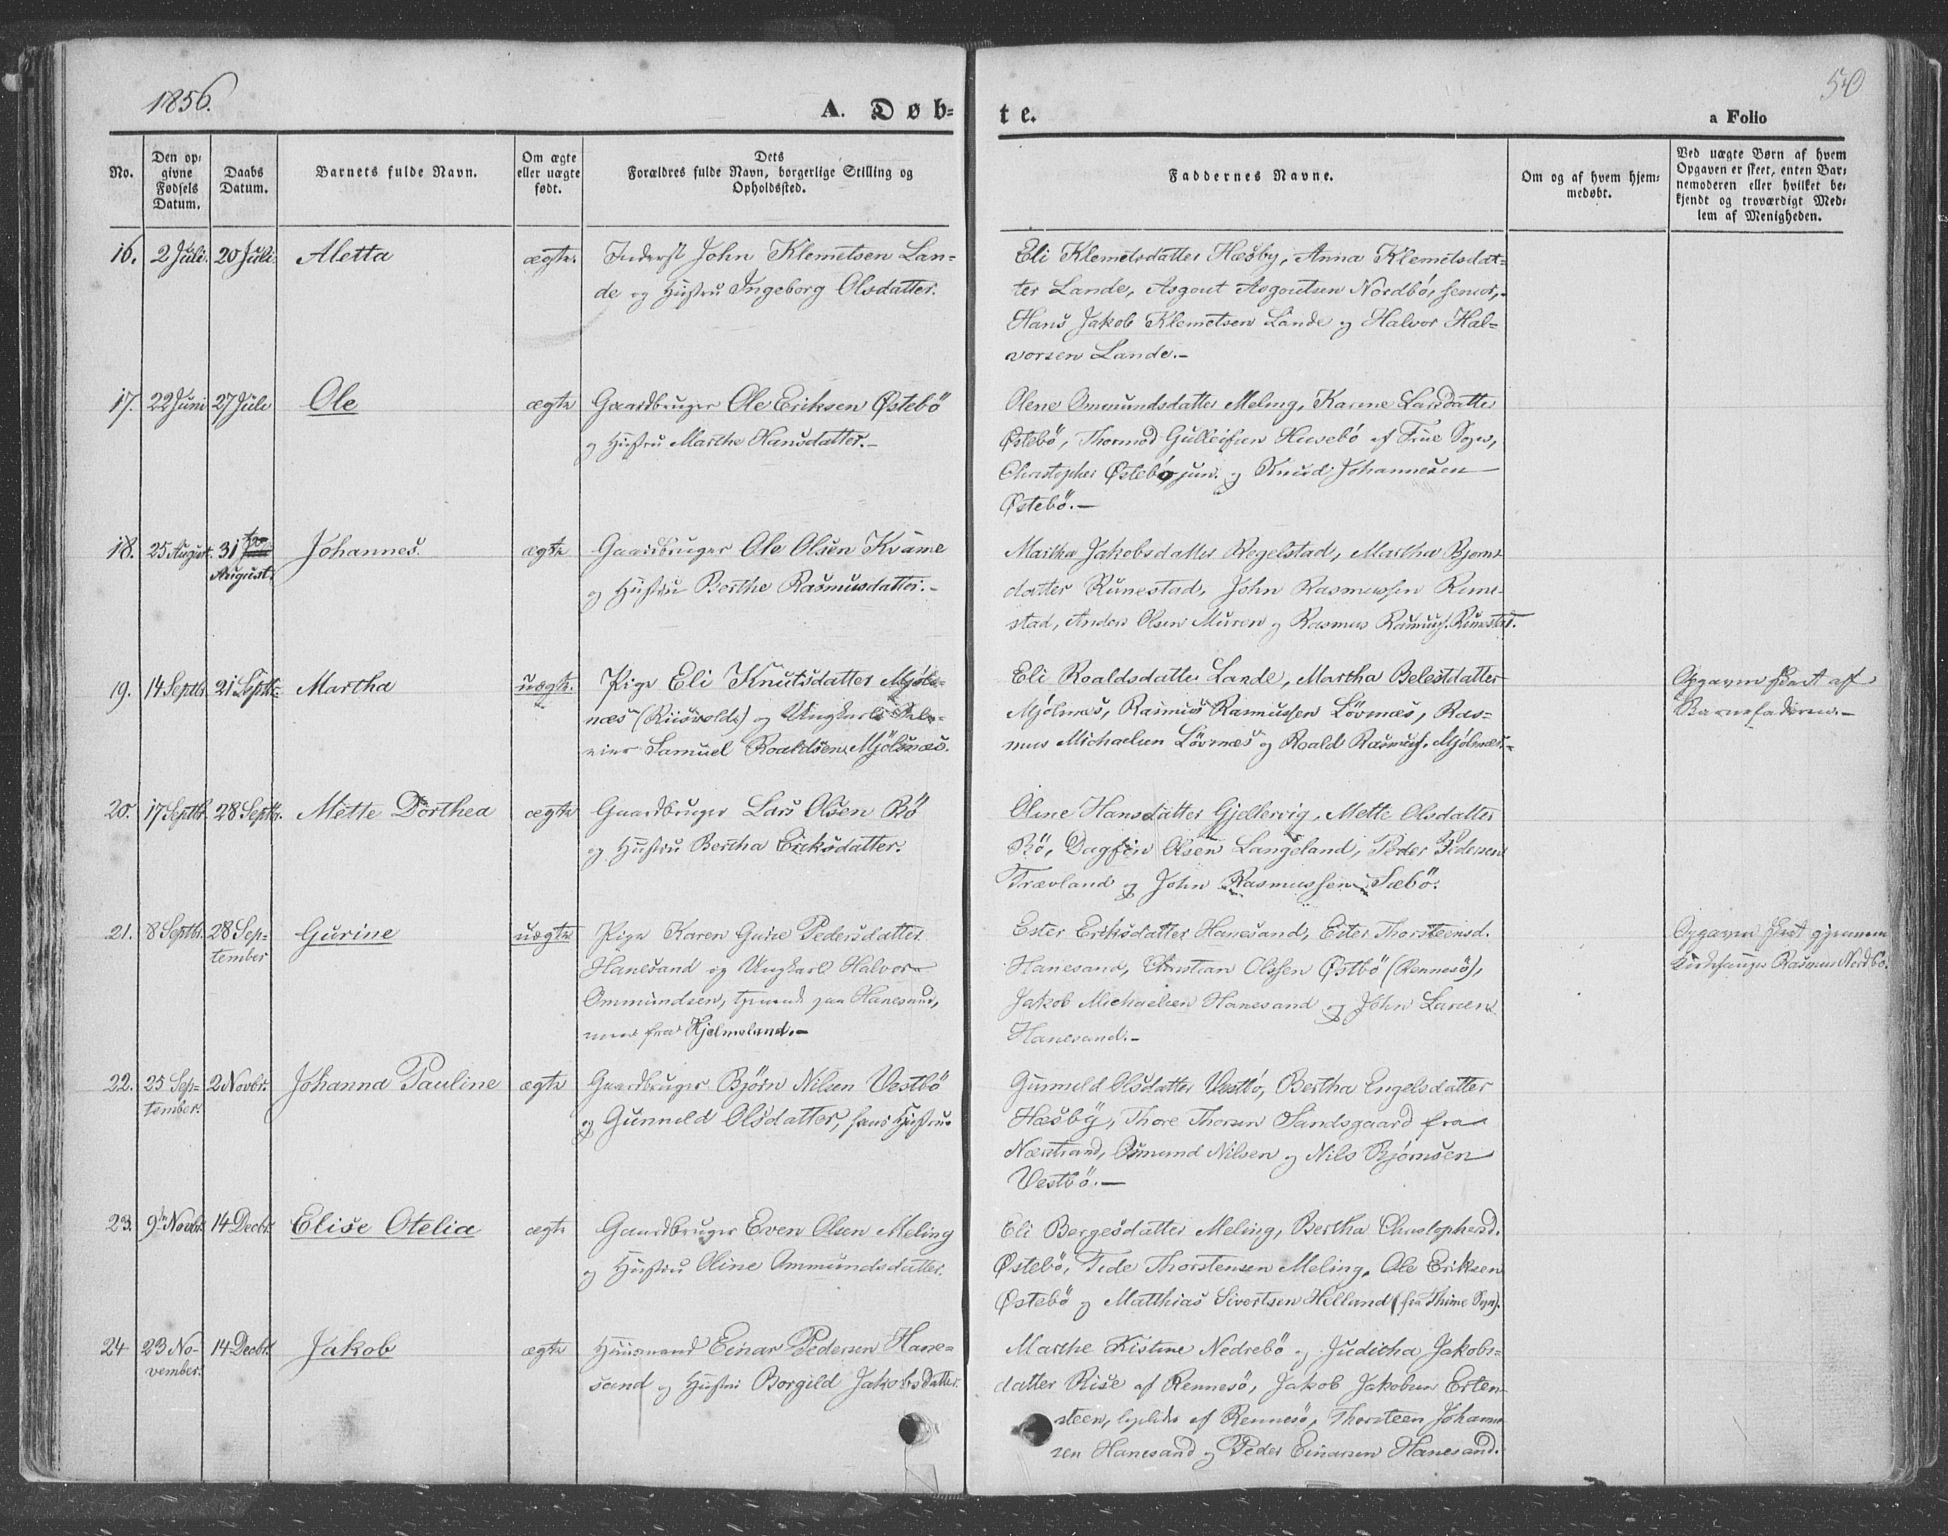 1856.
50
A. Døb-
te.
a Folio
No.
Den op-
givne
Fødsels
Datum.
Daabs
Datum.
Barnets fulde Navn.
Om ægte
eller uægte
født.
Dets
Forældres fulde Navn, borgerlige Stilling og
Opholdssted.
Faddernes Navne.
Om og af hvem hjem-
medøbt.
Ved uægte Børn af hvem
Opgaven er skeet, enten Bar-
nemoderen eller hvilket be-
kjendt og troværdigt Med-
lem af Menigheden.
16. 2 Juli. 20 Juli. Aletta ægte. Inderst John Klemetsen Lan-
de og Hustru Ingeborg Olsdatter.
Eli Klemetsdatter Hæsby, Anna Klemetsdat-
ter Lande, Asgout Asgoutsen Nordbö, senior,
Hans Jakob Klemetsen Lande og Halvor Hal-
vorsen Lande.-
17. 22 Juni 27 Juli Ole ægte Gaardbruger Ole Eriksen Østebö
og Hustru Marthe Hansdatter.-
Olene Ommundsdatter Meling, Karine Larsdatter
Østebö, Thormod Husebö af Sogn,
Christopher Østebö, jun. og Knud Johannesen
Østebö.-
18. 25 August. 31
August. Johannes. ægte Gaardbruger Ole Olsen Kvame
og Hustru Berthe Rasmusdatter.-
Martha Jakobsdatter Regelstad, Martha Bjørns-
datter Runestad, John Rasmussen Rune-
stad, Anders Olsen Muren og Rasmus Rasmuss. Runestad.
19. 14 Septbr. 21 Septbr. Martha uægte. Pige Eli Knutsdatter Mjöls-
næs (Riisvolds) og Ungkarl
Samuel Roaldsen Mjölsnæs.
Eli Roaldsdatter Lande, Martha Belestdatter
Mjölnæs, Rasmus Rasmussen Lövnæs, Ras-
mus Michaelsen Lövnæs og Roald Rasmuss. Mjölnæs.-
Opgaven skeet af
Barnefaderen.-
20. 17 Septbr. 28 Septbr. Mette Dorthea ægte Gaardbruger Lars Olsen Bö
og Hustru Bertha Eriksdatter.
Oline Hansdatter Gjellervig, Mette Olsdatter
Bö, Dagfin Olsen Langeland, Peder Pedersen
Frævland og John Rasmussen Sæbö.
21. 8 Septbr. 28 Sep-
tember Gurine uægte Pige Karen Gurie Pedersdatter
Hanesand og Ungkarl Halvor
Ommundsen, tjenende paa Hanesand,
men fra Hjelmeland.-
Ester Eriksdatter Hanesand, Ester Thorsteensd.
Hanesand, Christian Olssen Østbö (Rennesö),
Jakob Michaelsen Hanesand og John Larsen
Hanesand.-
Opgaven skeet gjennem
Kirkesanger Rasmus Nordbö.
22. 25 Sep-
tember. 2 Novbr. Johanna Pauline ægte Gaardbruger Björn Nilsen Vestbö
og Gunneld Olsdatter, hans Hustru.
Gunneld Olsdatter Vestbö, Bertha Engelsdatter
Hæsby, Thore Thorsen Sandsgaard fra
Nærstrand, Osmund Nilsen og Nils Bjørnsen
Vestbö.-
23. 9de Novbr. 14 Decbr. Elise Otelia ægte Gaardbruger Even Olsen Meling
og Hustru Oline Ommundsdatter.
Eli Bergesdatter Meling, Bertha Christophersd.
Østebö, Tede Thorstensen Meling, Ole Eriksen
Østebö og Matthias Sivertsen Helland (fra Thime Sogn).
24 23 No-
vember. 14 Decbr. Jakob ægte Huusmand Einar Pedersen Hane-
sand og Hustru Borgild Jakobsdatter.
Marthe Kistine Nedrebö og Juditha Jakobs-
datter Rise af Rennesö, Jakob Jakobsen Erten-
steen, af Rennesö, Thorsteen Johann-
sen Hanesand og Peder Einarsen Hanesand.